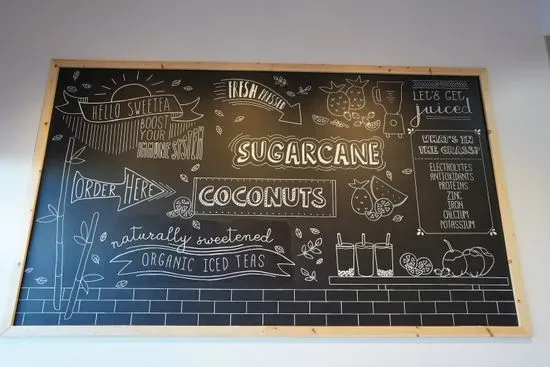 HELLO SWEETEA
BOOST
YOUR
IMMUNE SYSTEM
ORDER HERE
naturally sweetened
ORGANIC ICED TEAS
FRESH PRESSED
SUGARCANE
COCONUTS
LET'S GET
juiced
WHAT'S IN
THE GRASS?
ELECTROLYTES
ANTIOXIDANTS
PROTEINS
ZINC
IRON
CALCIUM
POTASSIUM